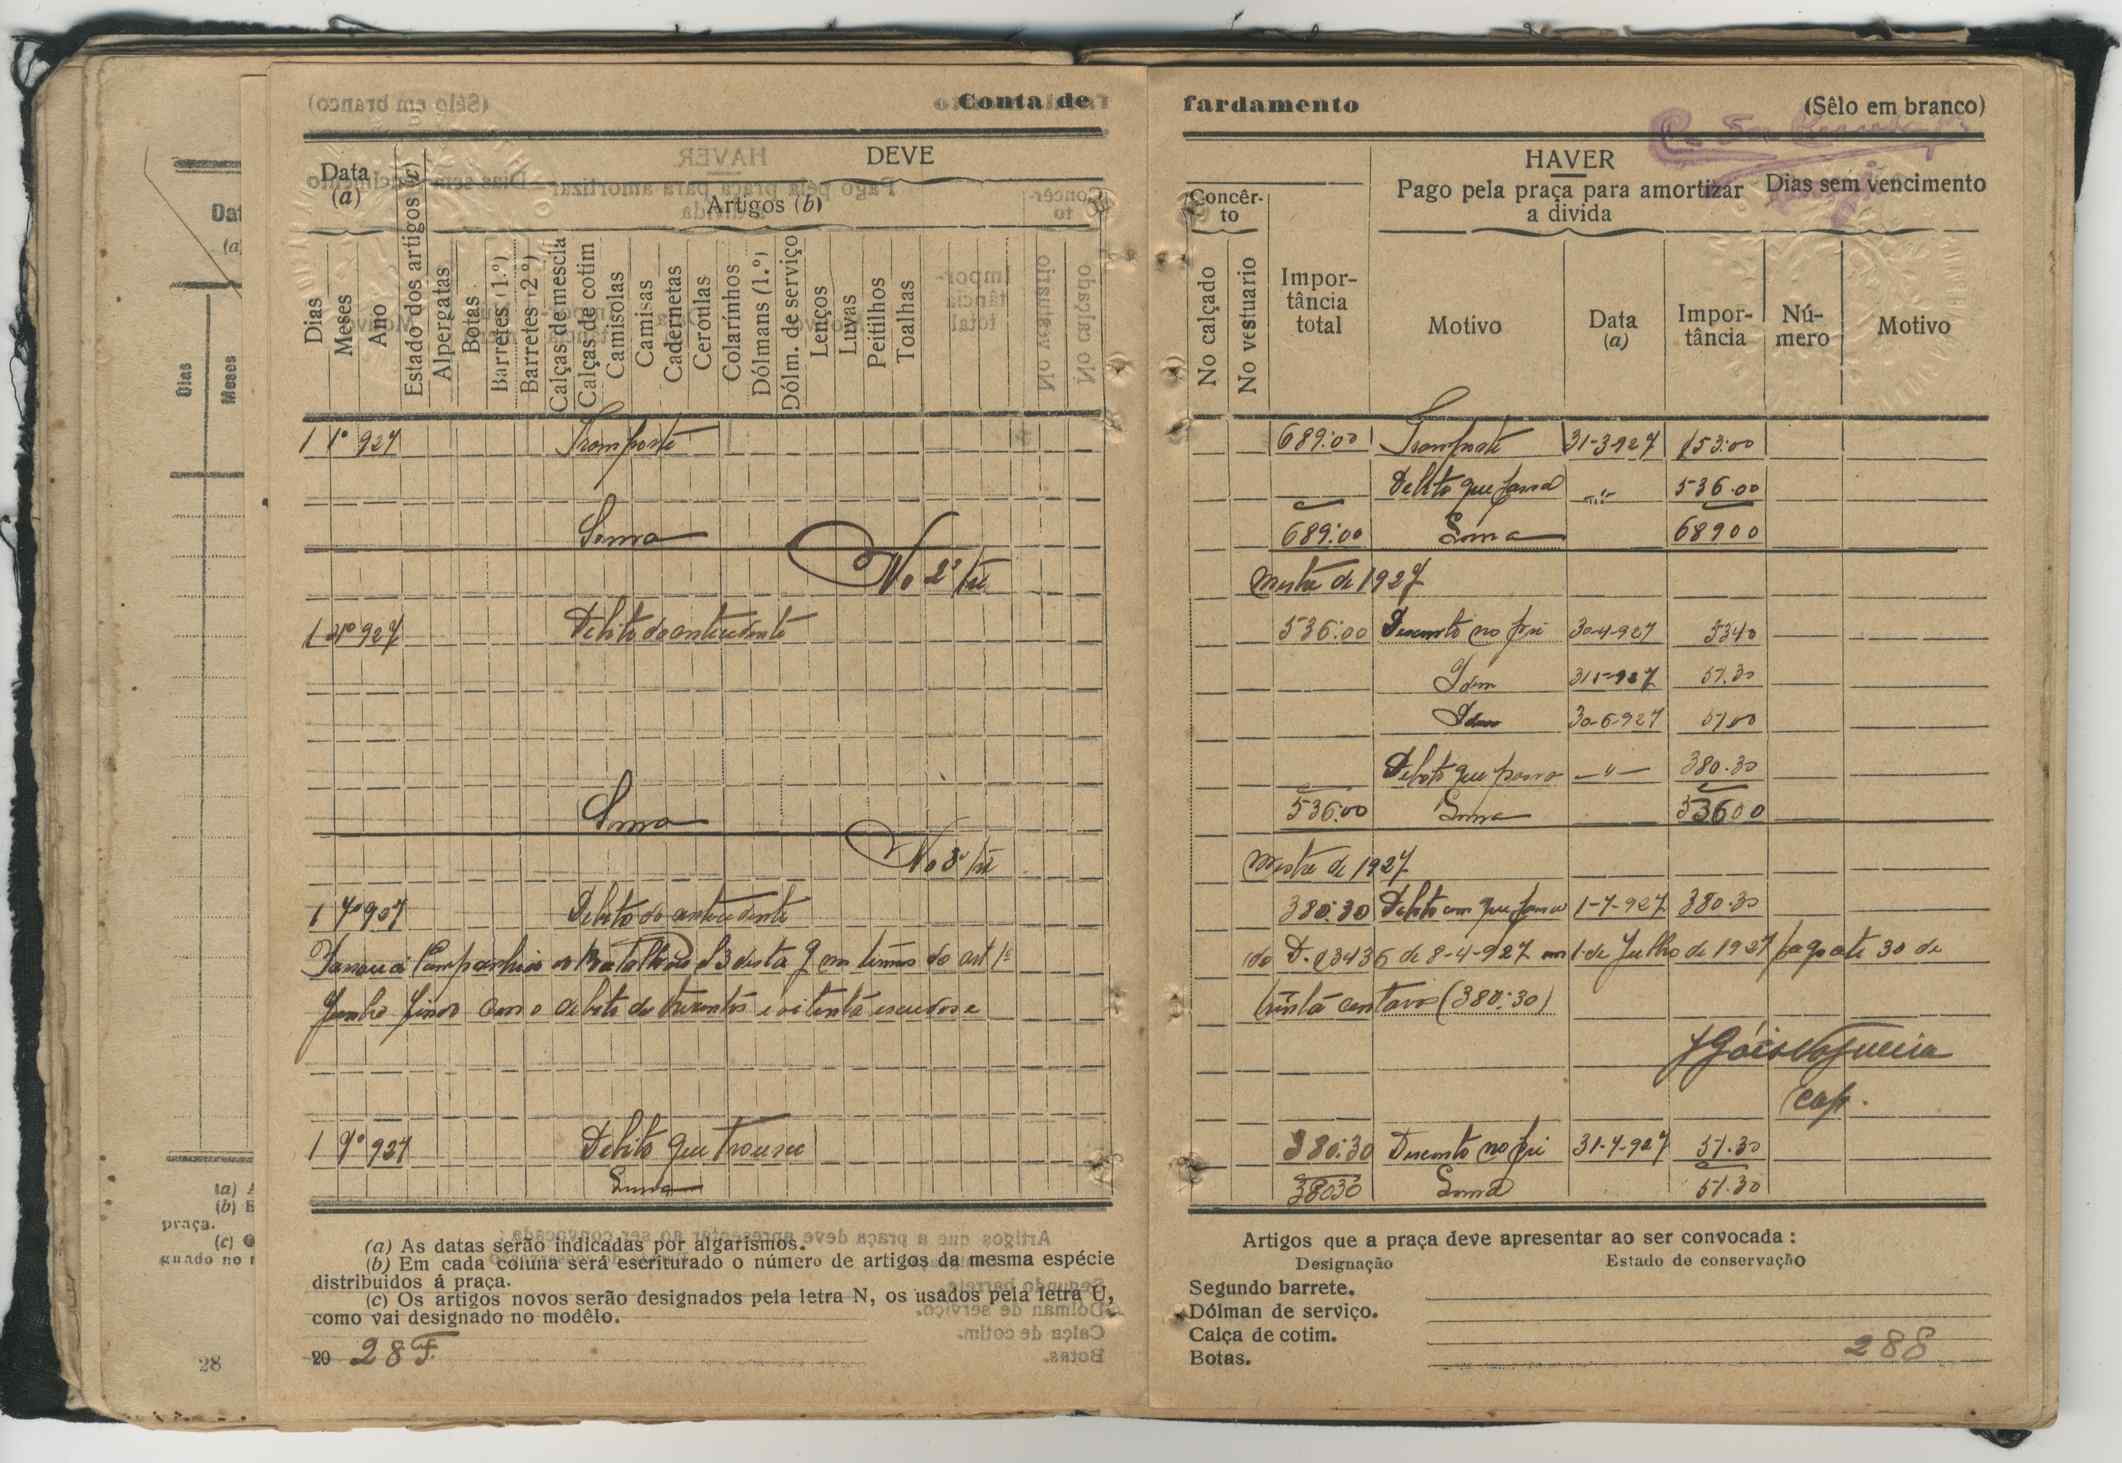 Conta de fardamento
(Sêlo em branco)
Data
(a)
DEVE
Artigos (b)
Dias
Meses
Ano
Estado dos artigos (c)
Alpergatas
Botas
Barretes (1.º)
Barretes (2.º)
Calças de mescla
Calças de cotim
Camisolas
Camisas
Cadernetas
Ceroulas
Colarínhos
Dólmans (1.º)
Dólm. de serviço
Lenços
Luvas
Peitilhos
Toalhas
HAVER
Concêr-
to
No calçado
No vestuario
Impor-
tância
total
Pago pela praça para amortizar
a divida
Motivo
Data
(a)
Impor-
tância
Dias sem vencimento
Nú-
mero
Motivo
1 1º 927 Transporte 689:00 Transporte 31-3-927 153:00
Debito que passa -"- 536.00
Soma 689:00 Soma 68900
No 2º tri mestre de 1927
1 4º 927 Debito do antecedente 536:00 Desconto no pré 30-4-927 5340
Idem 31-5-927 51.30
Idem 30-6-927 51,00
Debito que passa -"- 380.30
Soma 536:00 Soma 53600
No 3º tri mestre de 1927
1 7º 927 Debito do antecedente 380:30 Debito com que passa 1-7-927 380.30
Passou á Companhia do Batalhão nos termos do art 1º do D. 13436 de 8-4-927 em 1 de Julho de 1927 pago até 30 de
Junho findo com o debito de trezentos e oitenta escudos e trinta centavos (380:30)
Góis Nogueira
Cap.
1 7º 927 Debito que trouxe 380:30 Desconto no pré 31-7-927 51.30
Soma 38030 Soma 51.30
(a) As datas serão indicadas por algarismos.
(b) Em cada coluna será escriturado o número de artigos da mesma espécie
distribuidos á praça.
(c) Os artigos novos serão designados pela letra N, os usados pela letra U,
como vai designado no modêlo.
20 28 F.
Artigos que a praça deve apresentar ao ser convocada :
Designação Estado de conservação
Segundo barrete.
Dólman de serviço.
Calça de cotim.
Botas.
288
Dias
Meses
(a)
(b)
praça.
(c)
guado no
28